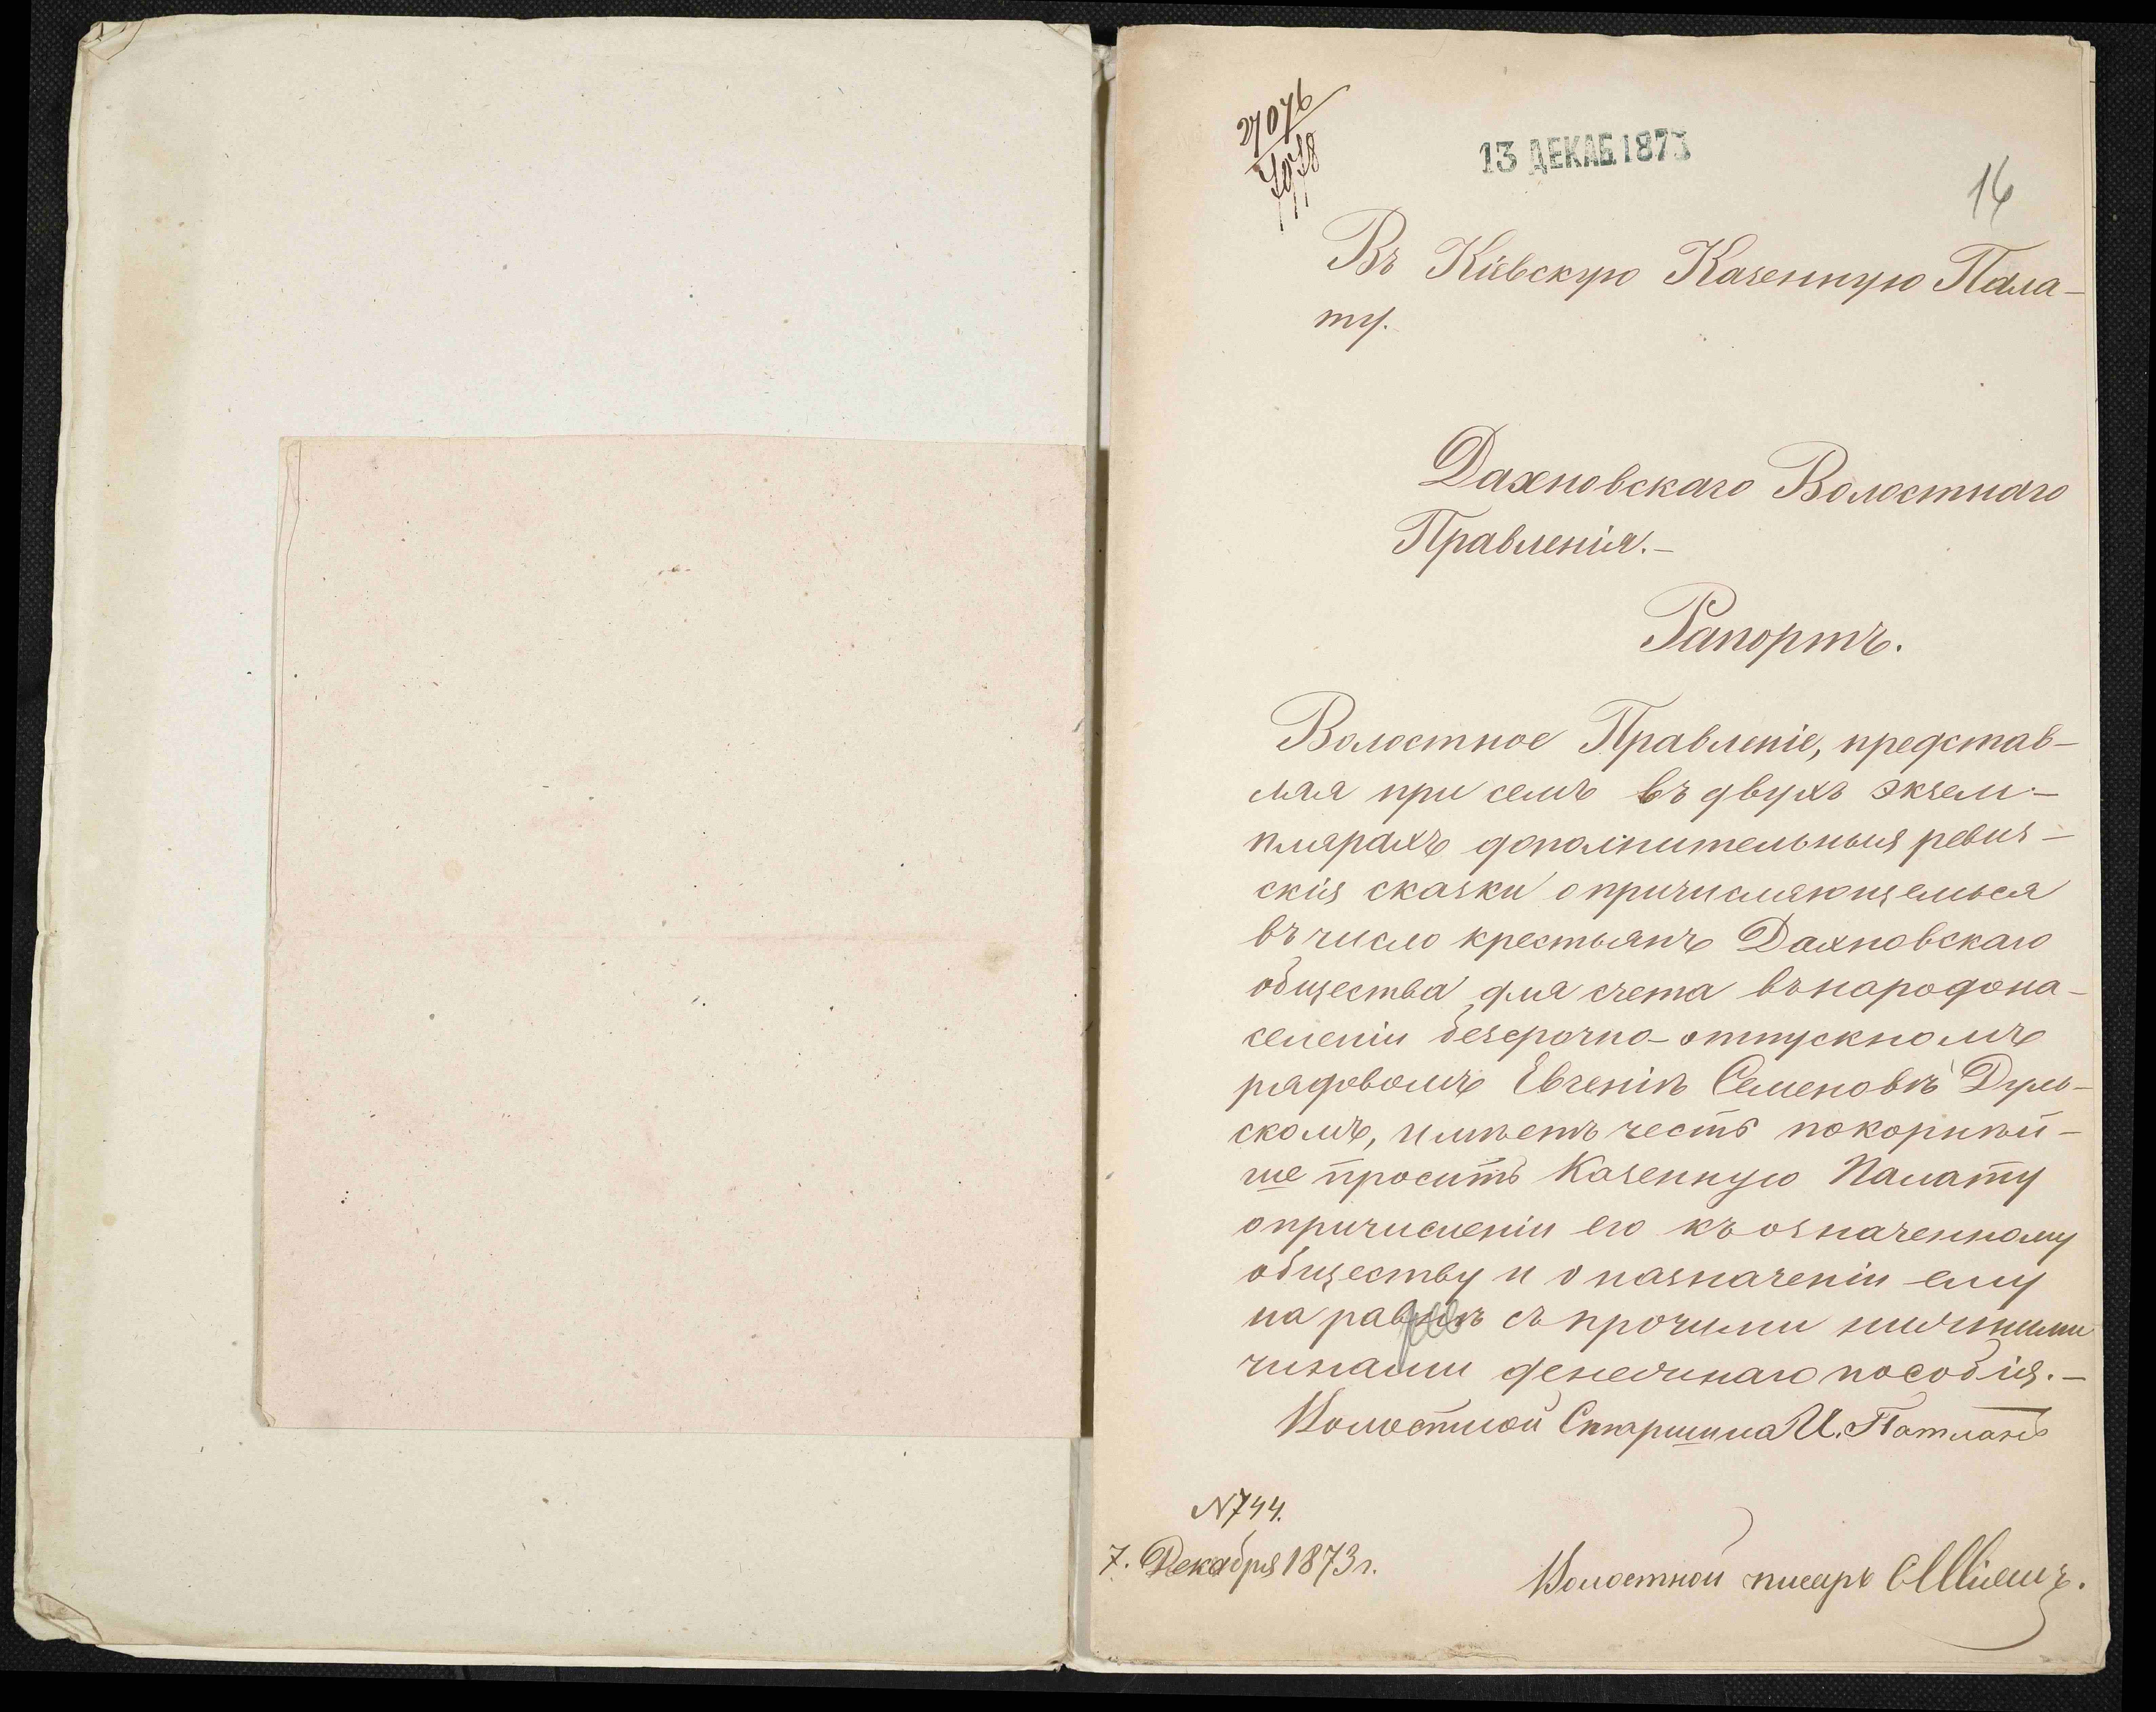 27076
13 ДЕКАБ 1873
16
Въ Кіевскую Казенную Пала-
ту.
Дахновскаго Волостнаго
Правленія.-
Рапортъ.
Волостное Правленіе, представ-
ляя при семъ въ двухъ экзем-
плярахъ дополнительныя ревиз-
скія сказки о причисляющемься
въ число крестьянъ Дахновскаго
общества для счета въ народона-
селеніи безсрочно-отпускномъ
рядовомъ Евгеніѣ Семеновѣ Дуль-
скомъ, имѣетъ честь покорнѣй-
ше просить Казенную Палату
о причисленіи его къ означенному
обществу и о назначеніи ему
на равнѣ съ прочими нижними
чинами денежнаго пособія.-
Волостной Старшина И. Патланъ
N744.
7. Декабря 1873 г.
Волостной писарь